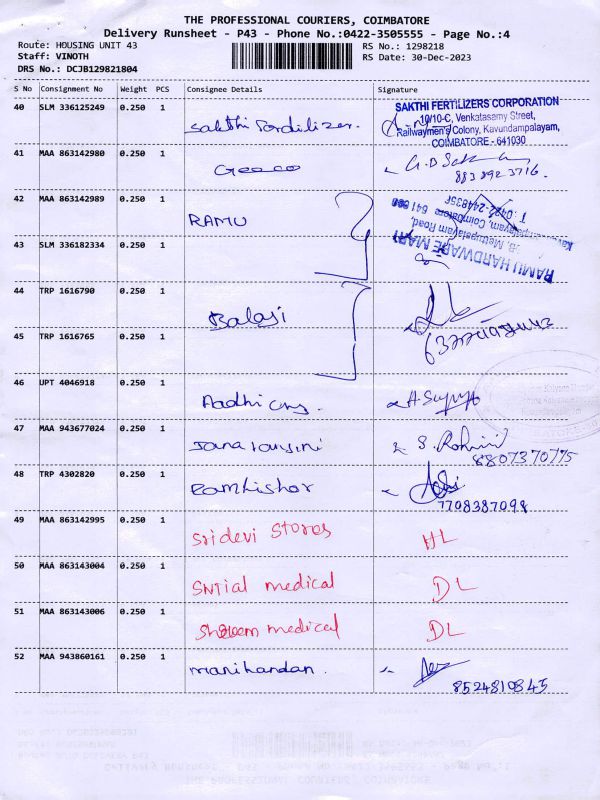 THE PROFESSIONAL COURIERS, COIMBATORE
Delivery Runsheet - P43 - Phone No.:0422-3505555 - Page No.:4
Route: HOUSING UNIT 43
RS No.: 1298218
Staff: VINOTH
RS Date: 30-Dec-2023
DRS No.: DCJB129821804
S No Consignment No Weight PCS Consignee Details Signature
40 SLM 336125249 0.250 1 Sakthi Fardilizer.
SAKTHI FERTILIZERS CORPORATION
10/10-C, Venkatasamy Street,
Railwaymen's Colony, Kavundampalayam,
COIMBATORE - 641030
41 MAA 863142980 0.250 1
8838923716.
42 MAA 863142989 0.250 1 RAMU
RAMU HARDWARE MART
Mettupalayam Road,
43 SLM 336182334 0.250 1
44 TRP 1616790 0.250 1 Balaji
45 TRP 1616765 0.250 1
46 UPT 4046918 0.250 1 Aadhi
47 MAA 943677024 0.250 1 S. Rohini
8807370775
48 TRP 4302820 0.250 1 Ramkishor
7708387098
49 MAA 863142995 0.250 1 Sridevi Stores HL
50 MAA 863143004 0.250 1 medical DL
51 MAA 863143006 0.250 1 medical DL
52 MAA 943860161 0.250 1 Manikandan.
8524810845